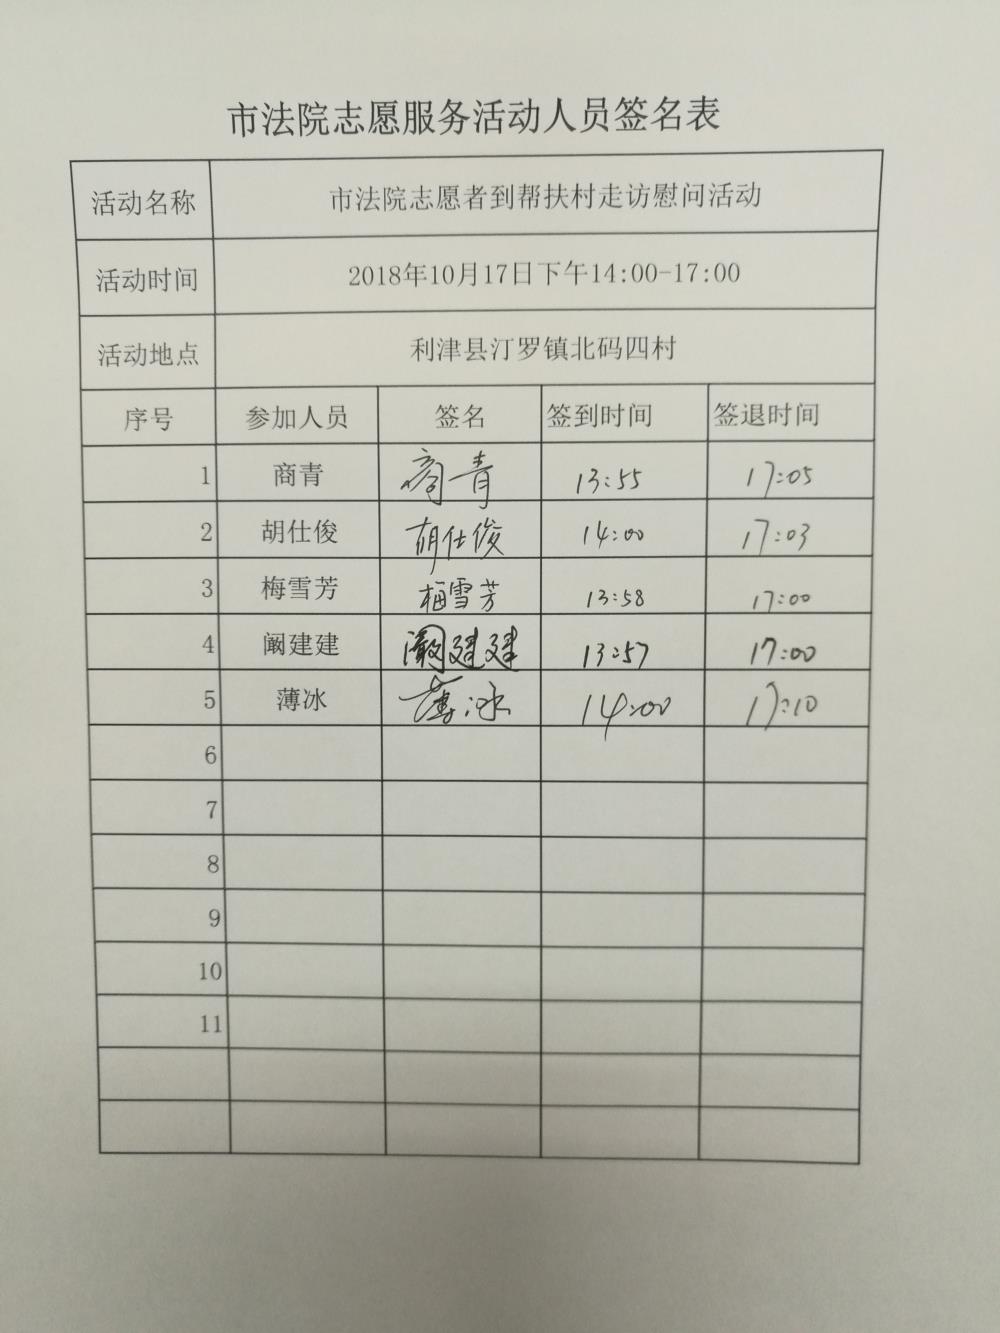 市法院志愿服务活动人员签名表
活动名称 市法院志愿者到帮扶村走访慰问活动
活动时间 2018年10月17日下午14:00-17:00
活动地点 利津县汀罗镇北码四村
序号 参加人员 签名 签到时间 签退时间
1 商青 商青 13:55 17:05
2 胡仕俊 胡仕俊 14:00 17:03
3 梅雪芳 梅雪芳 13:58 17:00
4 阚建建 阚建建 13:57 17:00
5 薄冰 薄冰 14:00 17:10
6
7
8
9
10
11